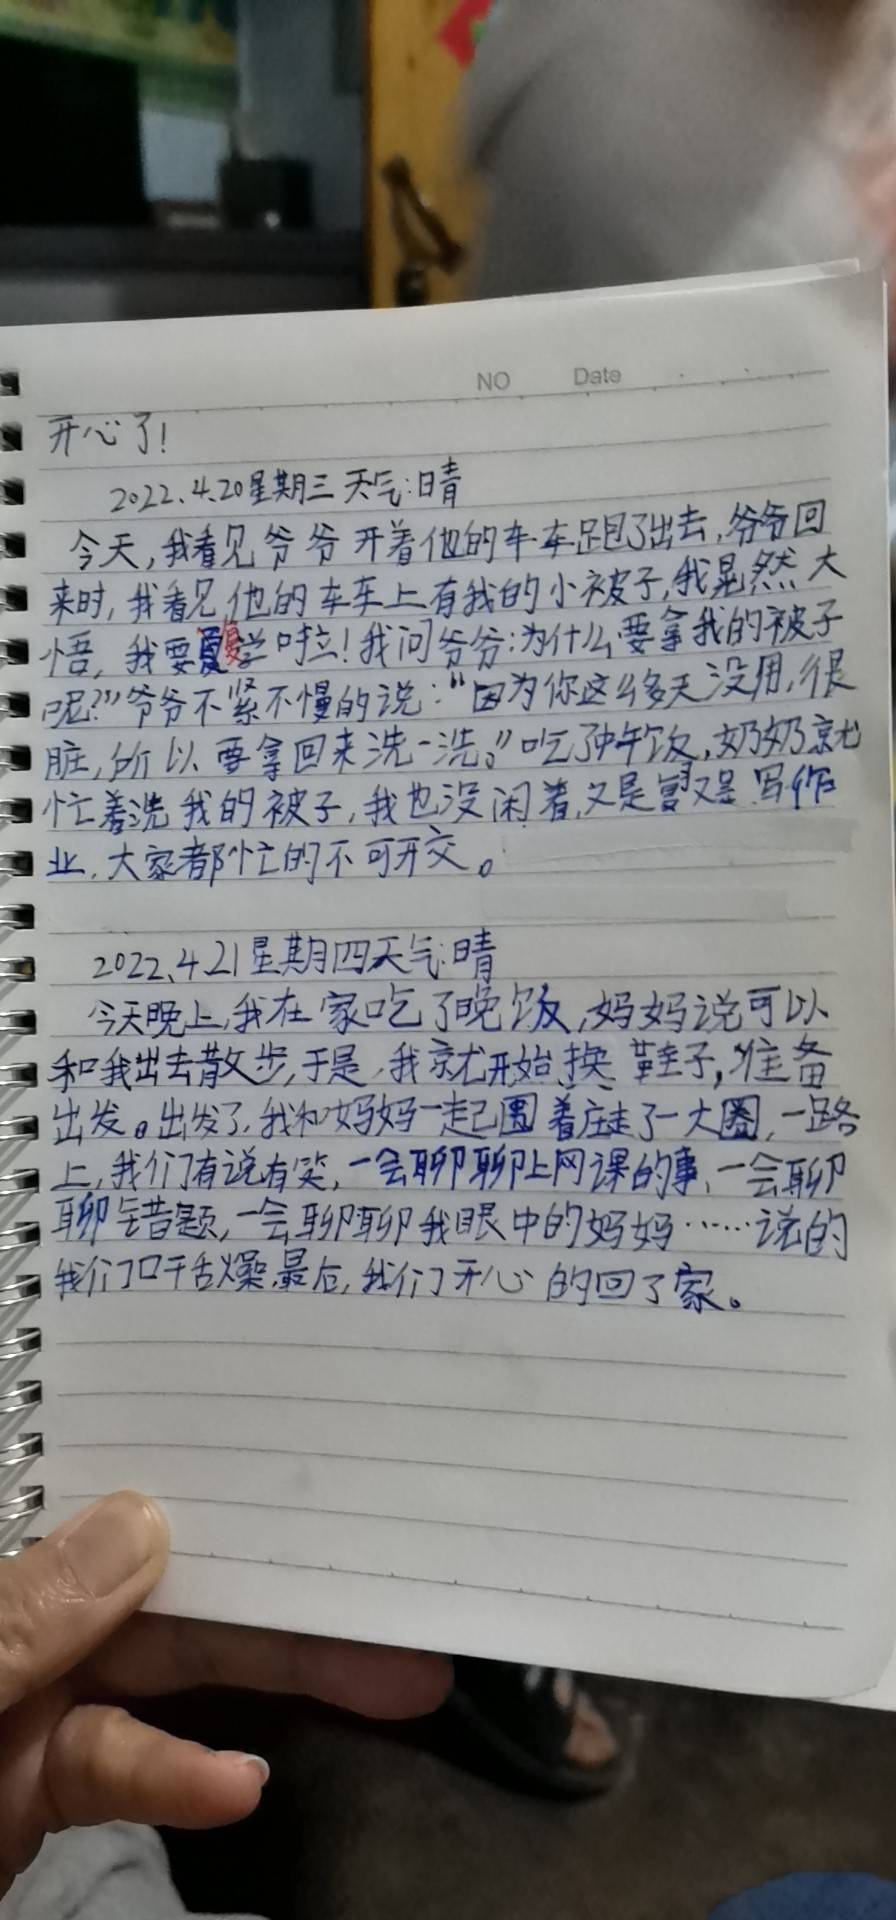 NO Date
开心了!
2022.4.20星期三 天气:晴
今天,我看见爷爷开着他的车车跑了出去,爷爷回
来时,我看见他的车车上有我的小被子,我晃然大
悟,我要复学啦!我问爷爷:为什么要拿我的被子
呢?”爷爷不紧不慢的说:“因为你这么多天没用,很
脏,所以要拿回来洗一洗。”吃了中午饭,奶奶就
忙着洗我的被子,我也没闲着,又是 又是写作
业,大家都忙的不可开交。
2022.4.21星期四天气:晴
今天晚上,我在家吃了晚饭,妈妈说可以
和我出去散步,于是,我就开始换鞋子,准备
出发。出发了,我和妈妈一起围着庄走了一大圈,一路
上,我们有说有笑,一会聊聊上网课的事,一会聊
聊错题,一会聊聊我眼中的妈妈……说的
我们口干舌燥,最后,我们开心的回了家。